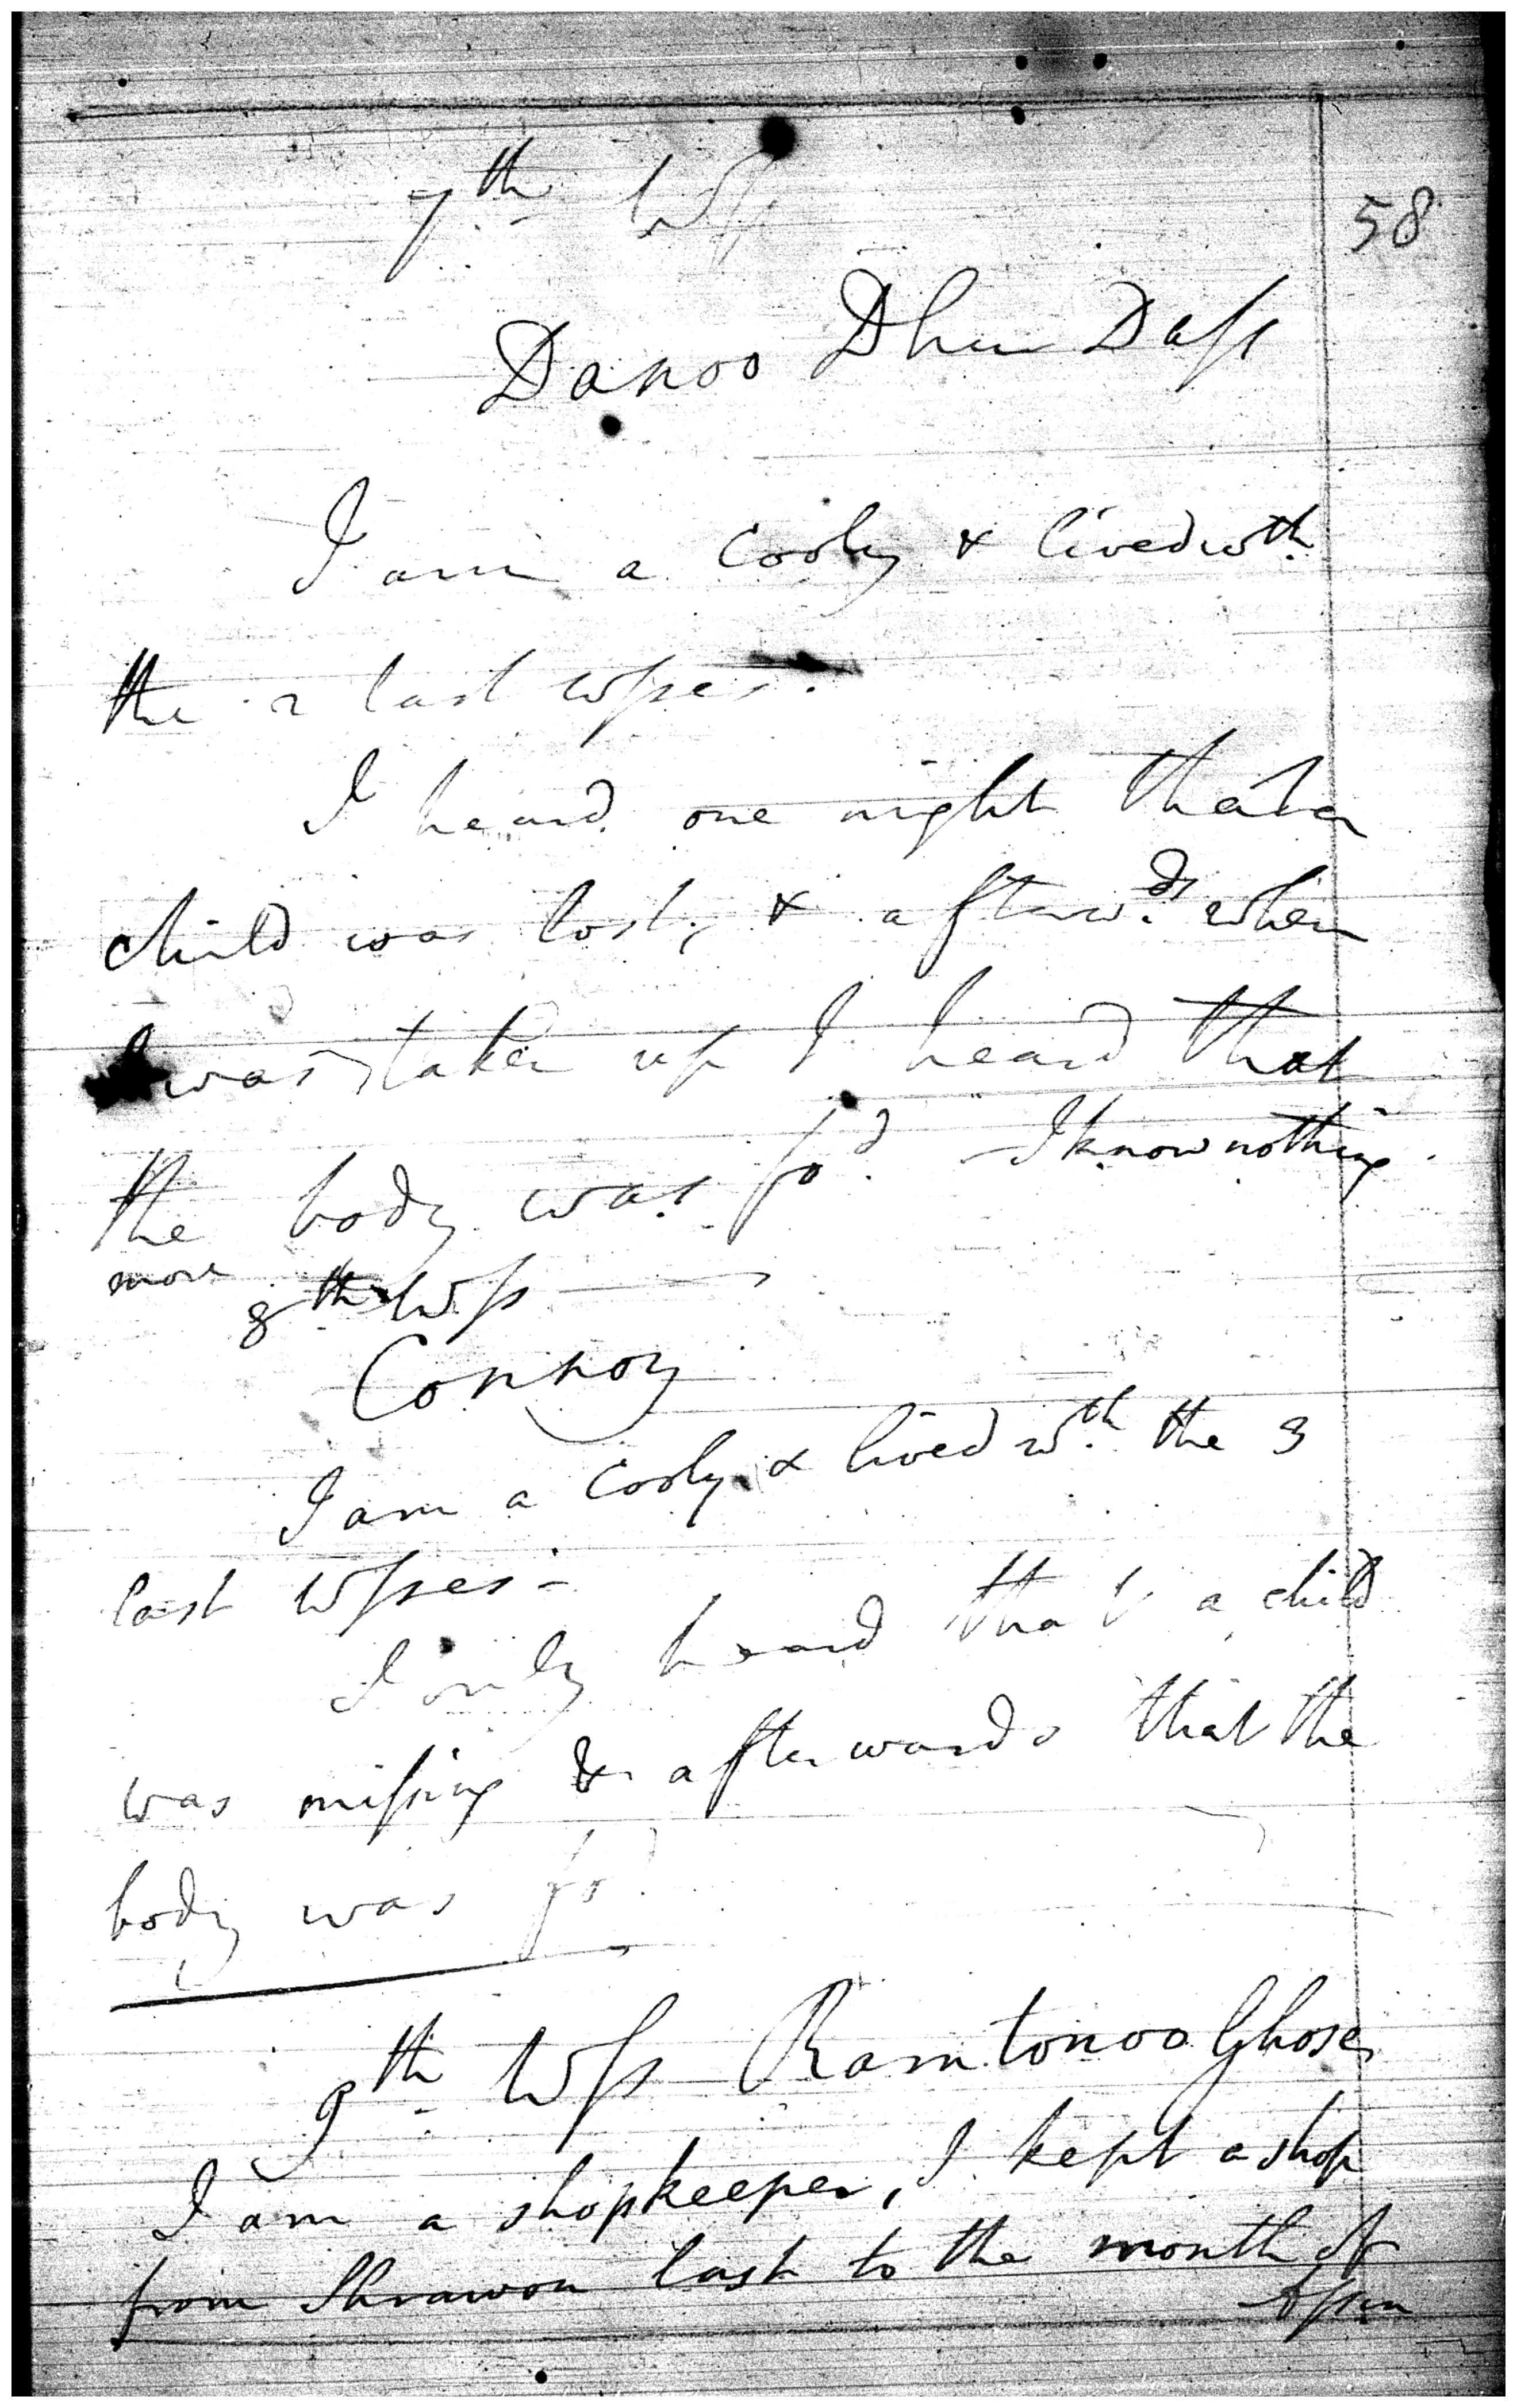 7th Wss
58
Danoo Dhun Dass
I am a Cooly & lived wth
the 2 last wsses.
I heard one night that a
child was lost, & afterwds when
I was taken up I heard that
the body was fod. I know nothing
more
8th Wss
Connoy
I am a Cooly & lived wth the 3
last wsses -
I only heard that a child
was missing & afterwards that the
body was fod
9th Wss Ramtonoo Ghose
I am a shopkeeper, I kept a shop
from Shrawon last to the month of
Assin